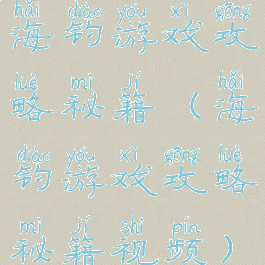 hǎi diào yóu xì gōng
海钓游戏攻
lüè mì jí hǎi
略秘籍（海
diào yóu xì gōng lüè
钓游戏攻略
mì jí shì pín
秘籍视频）